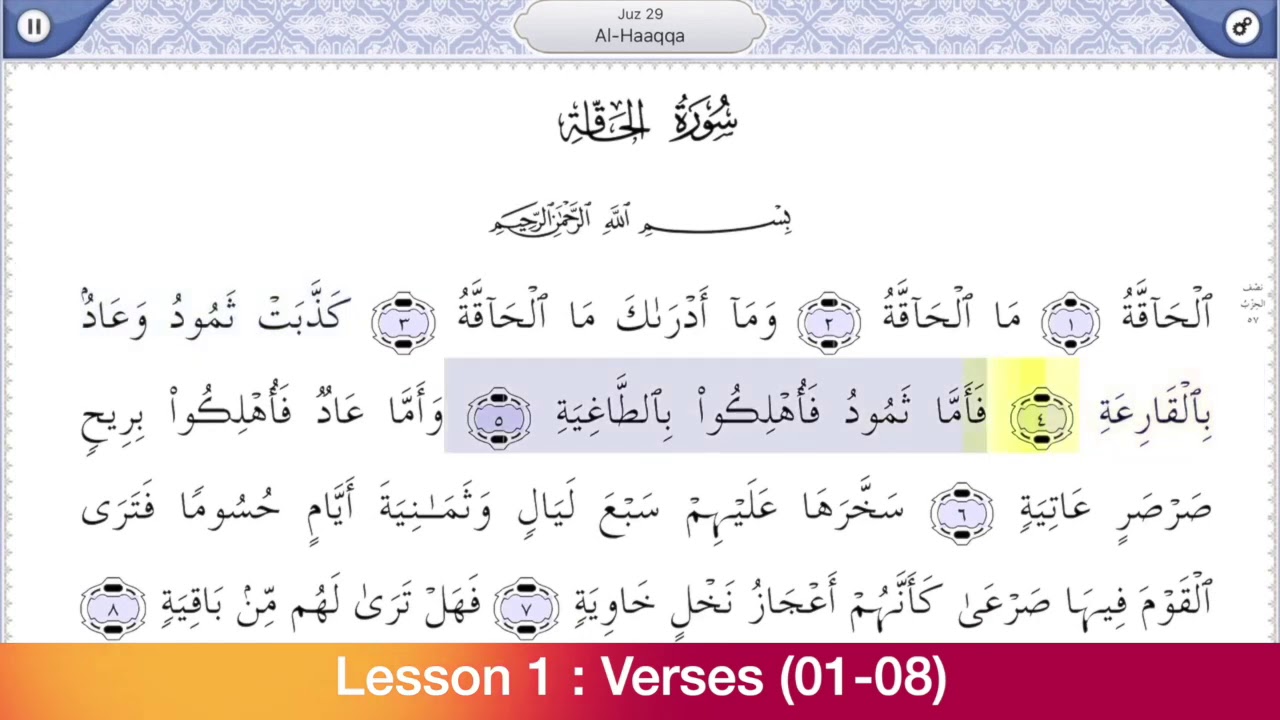 Juz 29
Al-Haaqqa
سُورَةُ الحَاقَّةِ
بِسْمِ ٱللَّهِ ٱلرَّحْمَٰنِ ٱلرَّحِيمِ
ٱلْحَآقَّةُ ١ مَا ٱلْحَآقَّةُ ٢ وَمَآ أَدْرَىٰكَ مَا ٱلْحَآقَّةُ ٣ كَذَّبَتْ ثَمُودُ وَعَادٌۢ
نصف
الحزب
٥٧
بِٱلْقَارِعَةِ ٤ فَأَمَّا ثَمُودُ فَأُهْلِكُوا۟ بِٱلطَّاغِيَةِ ٥ وَأَمَّا عَادٌ فَأُهْلِكُوا۟ بِرِيحٍ
صَرْصَرٍ عَاتِيَةٍ ٦ سَخَّرَهَا عَلَيْهِمْ سَبْعَ لَيَالٍ وَثَمَـٰنِيَةَ أَيَّامٍ حُسُومًا فَتَرَى
ٱلْقَوْمَ فِيهَا صَرْعَىٰ كَأَنَّهُمْ أَعْجَازُ نَخْلٍ خَاوِيَةٍ ٧ فَهَلْ تَرَىٰ لَهُم مِّنۢ بَاقِيَةٍ ٨
Lesson 1 : Verses (01-08)